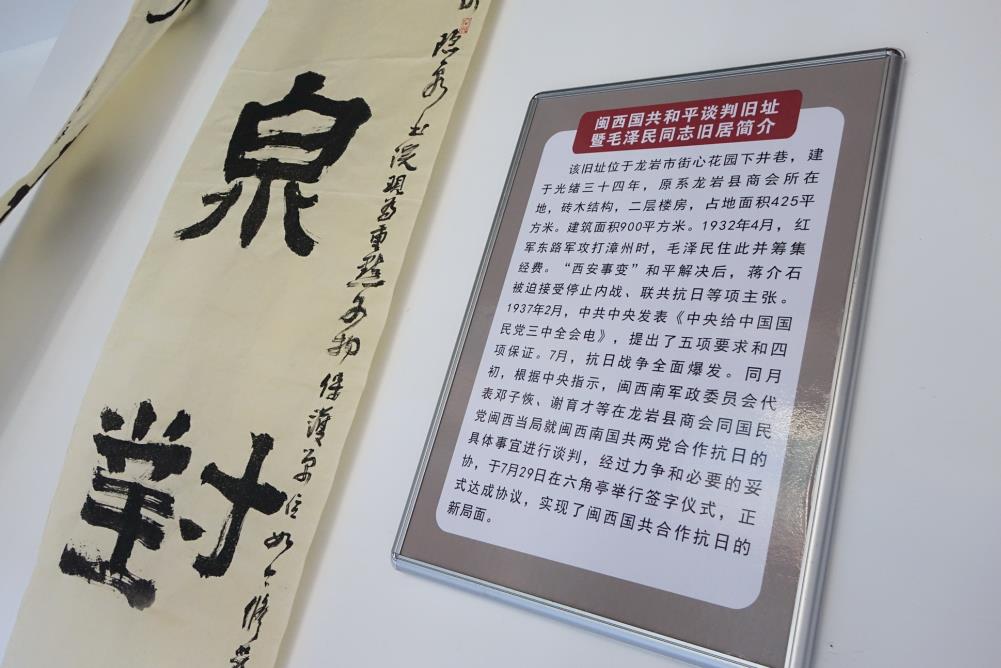 闽西国共和平谈判旧址
暨毛泽民同志旧居简介
该旧址位于龙岩市街心花园下井巷，建
于光绪三十四年，原系龙岩县商会所在
地，砖木结构，二层楼房，占地面积425平
方米。建筑面积900平方米。1932年4月，红
军东路军攻打漳州时，毛泽民住此并筹集
经费。“西安事变”和平解决后，蒋介石
被迫接受停止内战、联共抗日等项主张。
1937年2月，中共中央发表《中央给中国国
民党三中全会电》，提出了五项要求和四
项保证。7月，抗日战争全面爆发。同月
初，根据中央指示，闽西南军政委员会代
表邓子恢、谢育才等在龙岩县商会同国民
党闽西当局就闽西南国共两党合作抗日的
具体事宜进行谈判，经过力争和必要的妥
协，于7月29日在六角亭举行签字仪式，正
式达成协议，实现了闽西国共合作抗日的
新局面。
泉對
书院现为重点文物保護单位